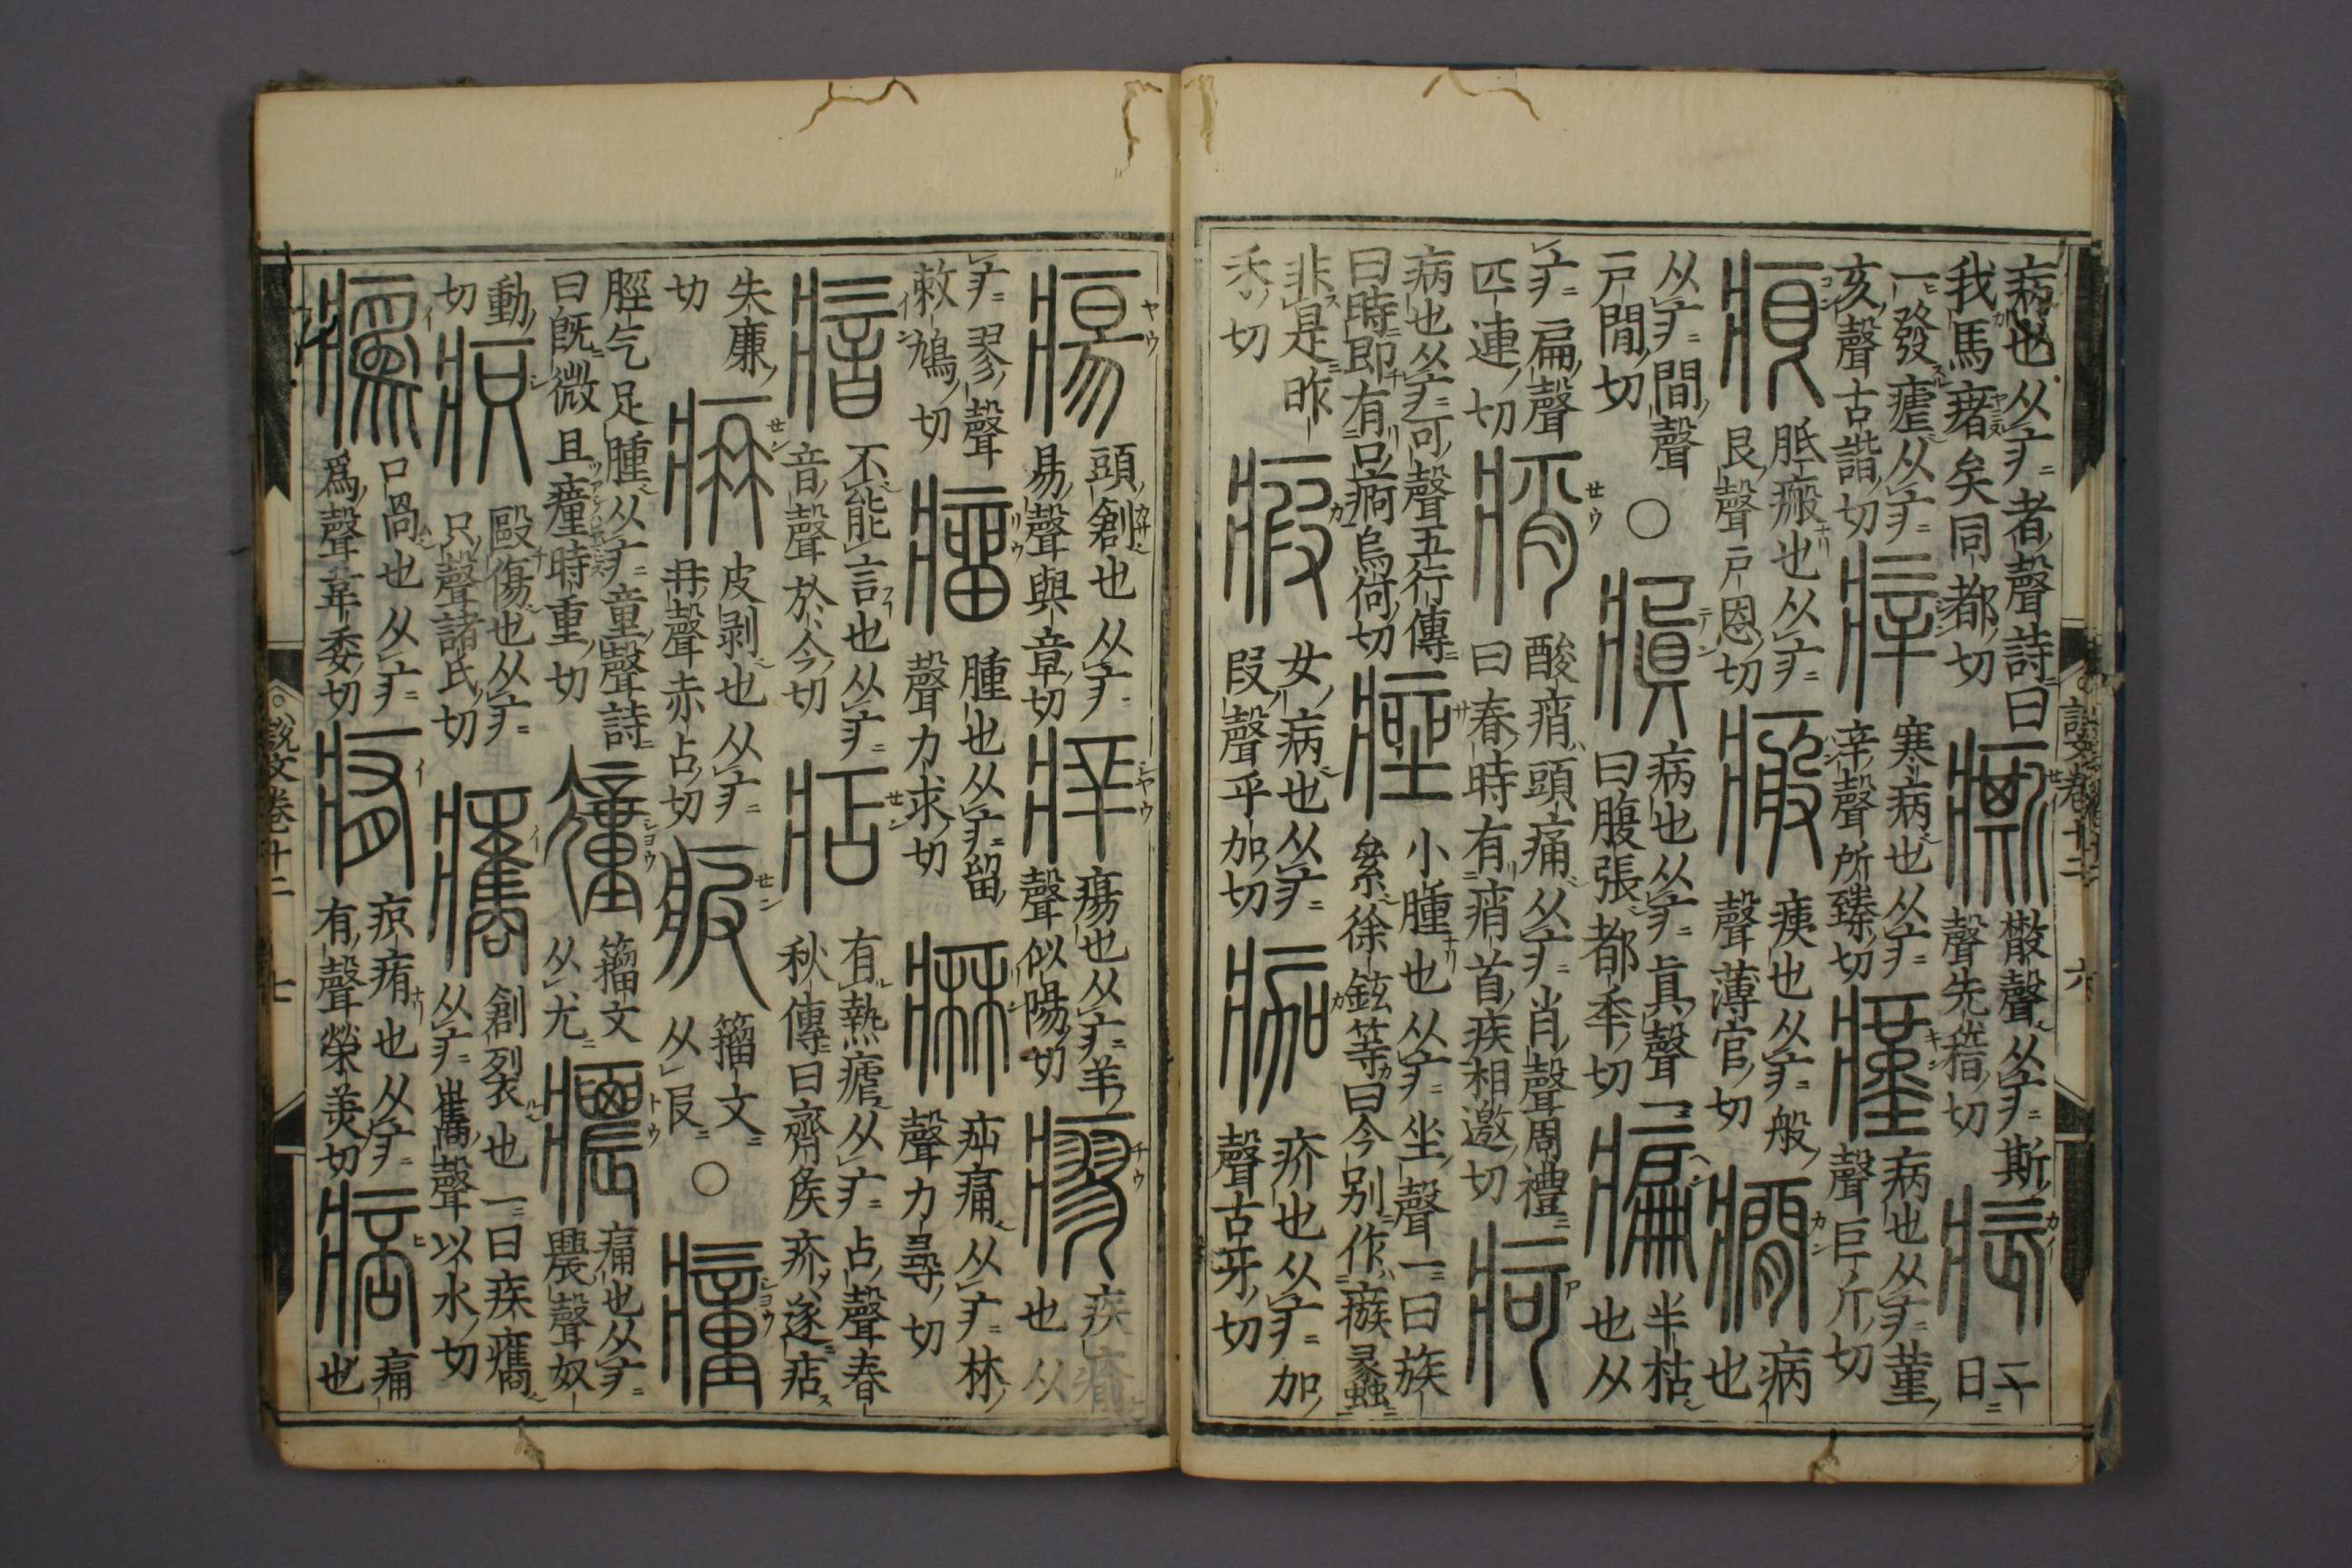 病也从疒者聲詩曰我馬瘏矣同都切 㪔聲从疒斯聲先稽切 痎 二日
一發瘧从疒亥聲古諧切 寒病也从疒辛聲所臻切 瘽 病也从疒堇聲巨斤切
痕 胝瘢也从疒艮聲戶恩切 瘢 痍也从疒般聲薄官切 癎 病也
从疒間聲戶閒切 ○ 瘨 病也从疒真聲一曰腹張都秊切 㾫 半枯也从
疒扁聲匹連切 痟 酸痟頭痛从疒肖聲周禮曰春時有痟首疾相邀切 疴
病也从疒可聲五行傳曰時即有口痾烏何切 痤 小腫也从疒坐聲一曰族絫徐鉉等曰今别作瘯蠡
非是昨禾切 瘕 女病也从疒叚聲乎加切 痂 疥也从疒加聲古牙切
說文卷十二 六
瘍 頭創也从疒昜聲與章切 痒 瘍也从疒羊聲似陽切 瘳 疾瘉也从
疒翏聲敕鳩切 瘤 腫也从疒留聲力求切 痳 疝痛从疒林聲力尋切
瘖 不能言也从疒音聲於今切 痁 有熱瘧从疒占聲春秋傳曰齊矦疥遂痁
失廉切 皮剥也从疒冄聲赤占切 籀文从𠬝 ○ 瘇
脛气足腫从疒童聲詩曰既微且瘇時重切 籀文从尢 癑 痛也从疒農聲奴
動切 疻 毆傷也从疒只聲諸氏切 㿈 創裂也一曰疾㿈从疒巂聲以水切
口咼也从疒爲聲韋委切 痏 疻痏也从疒有聲榮美切 痛也
說文卷十二 七